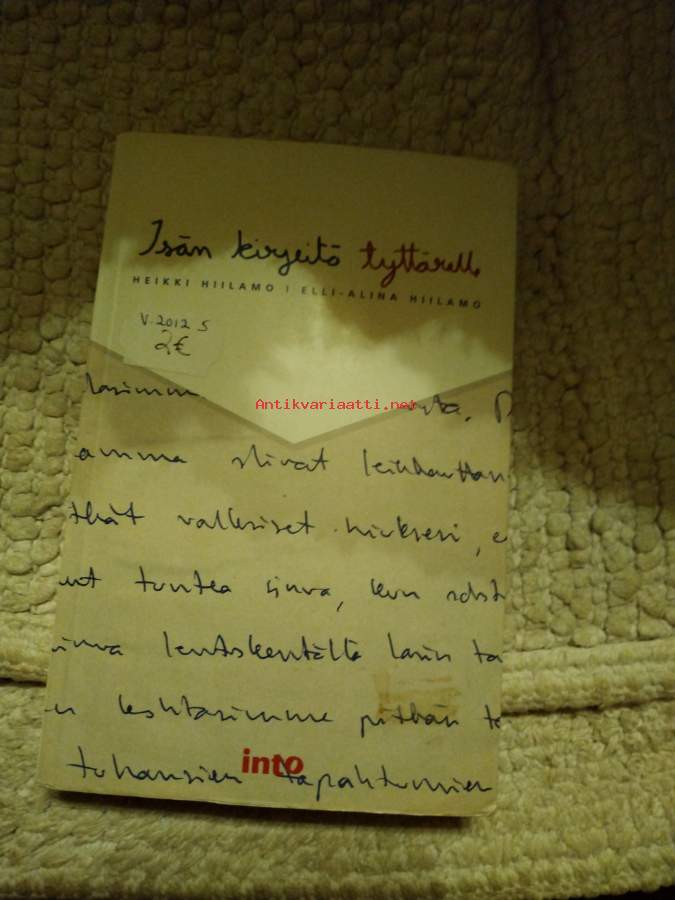 Isän kirjeitä tyttärelle
HEIKKI HIILAMO | ELLI-ALINA HIILAMO
V. 2012 5
2€
Antikvariaatti.net
amma olivat leikkauttan
valkoiset hiuksesi, e
ut tuntea sinua, kun
inua lentokentällä lasin ta
n kohtasimme pitkän
into
tuhansien tapahtumien